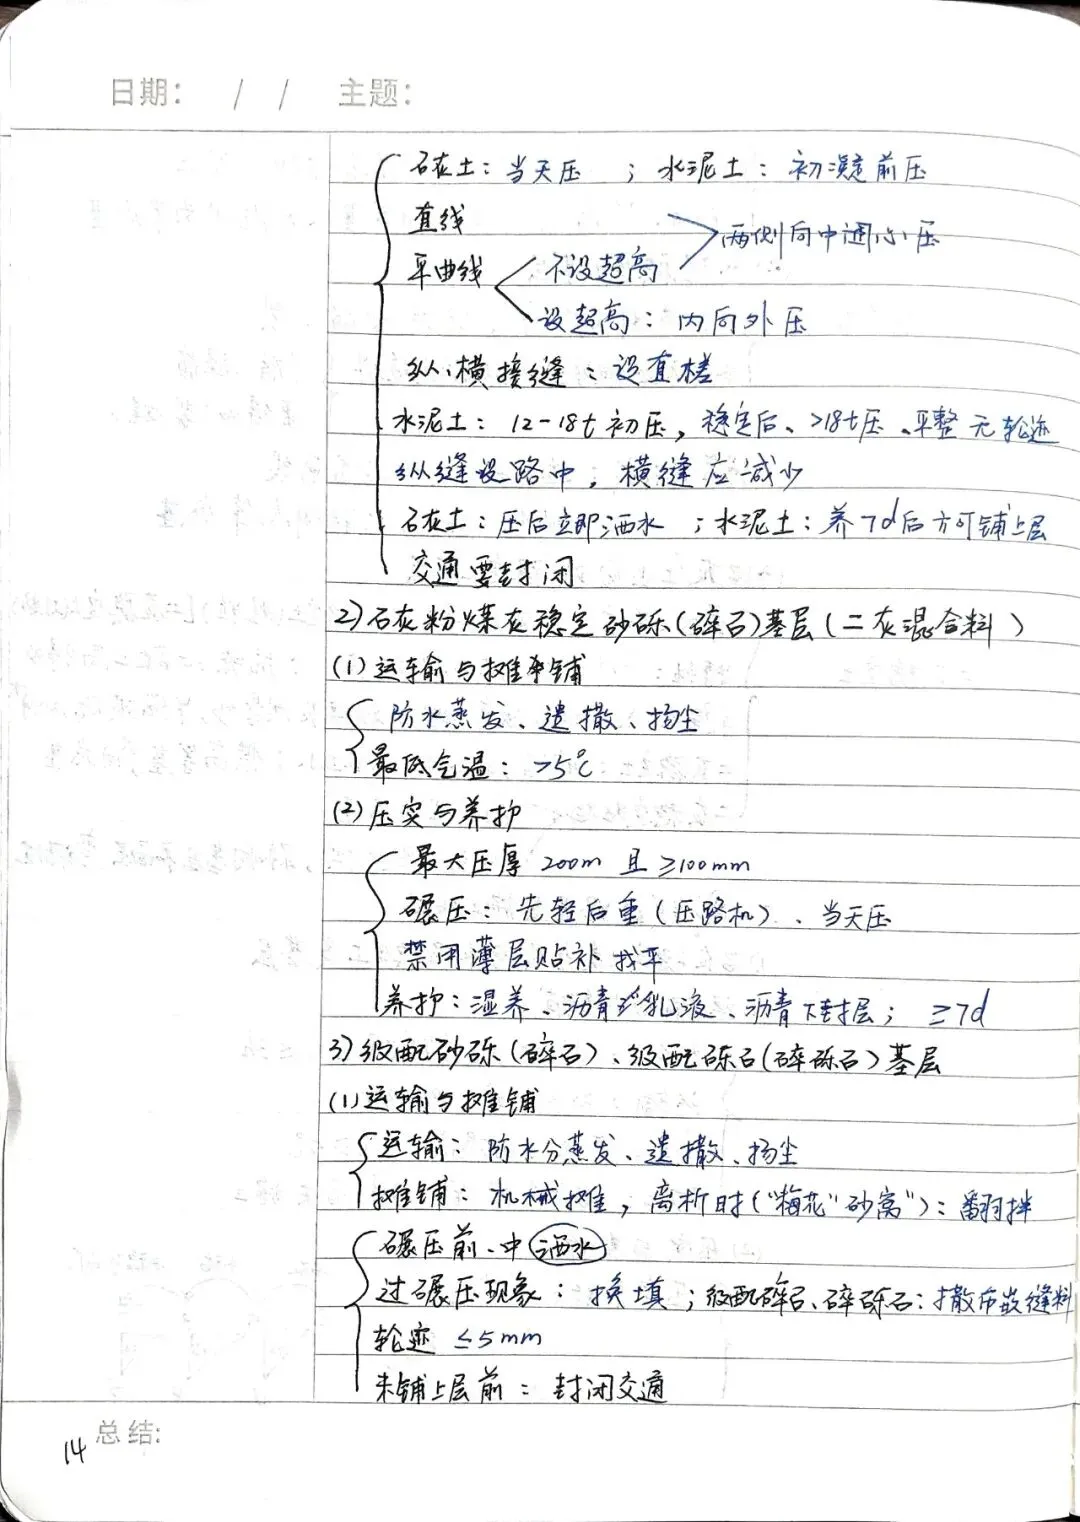 日期: / / 主题:
石灰土：当天压 ；水泥土：初凝前压
直线
两侧向中心压
平曲线 不设超高
设超高：内向外压
纵、横接缝：设直槎
水泥土：12-18t初压，稳定后、>18t压、平整无轮迹
纵缝设路中，横缝应减少
石灰土：压后立即洒水 ；水泥土：养7d后方可铺上层
交通要封闭
2)石灰粉煤灰稳定砂砾(碎石)基层(二灰混合料)
(1)运输与摊铺
防水蒸发、遗撒、扬尘
最低气温：>5℃
(2)压实与养护
最大压厚 200m 且≥100mm
碾压：先轻后重(压路机)、当天压
禁用薄层贴补找平
养护：湿养、沥青乳液、沥青下封层；≥7d
3)级配砂砾(碎石)、级配砾石(碎砾石)基层
(1)运输与摊铺
运输：防水分蒸发、遗撒、扬尘
摊铺：机械摊，离析时("梅花"砂窝")：翻拌
碾压前、中洒水
过碾压现象：换填；级配碎石、碎砾石：撒布嵌缝料
轮迹≤5mm
未铺上层前：封闭交通
总结:
14